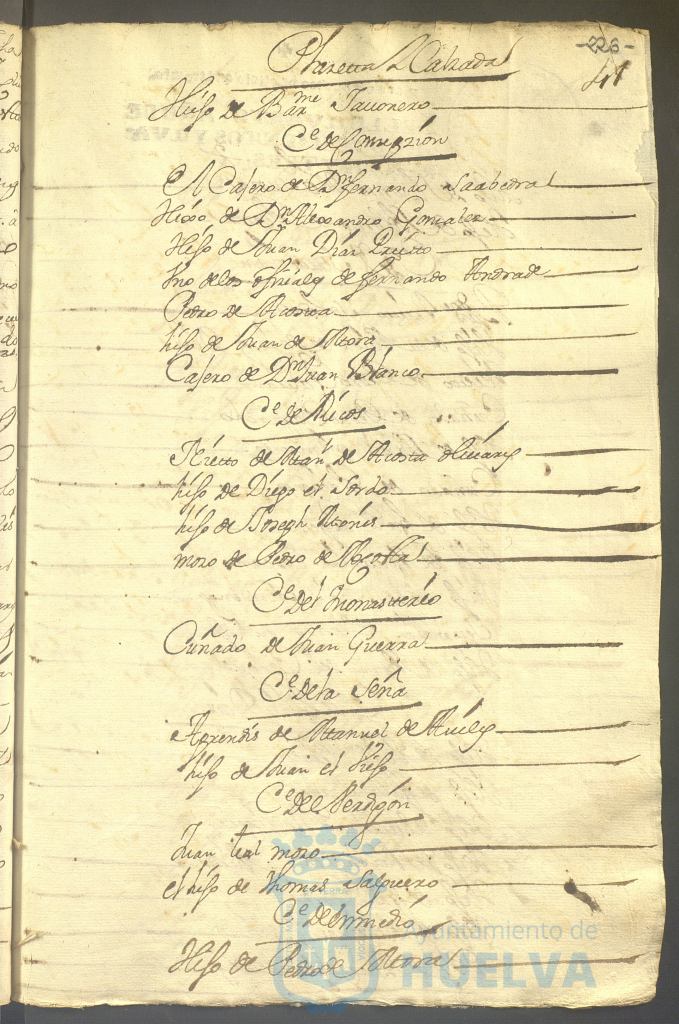 -226-
41
Plazetta Calzada
Hijo de Barme Tauonero
Ce de Conzepzion
El Casero de Dn fernando Saabedra
Hixo de Dn Alexandro Gonzales
Hijo de Juan Dias Prieto
Uno de los ofiziales de fernando Andrade
Pedro de Acosta
hijo de Juan de Mora
Casero de Dn Juan Blanco
Ce de Ricos
Nietto de Martn de Acosta
hijo de Diego el Sordo
hijo de Joseph
mozo de Pedro de Acosta
Ce del Monasterio
Cuñado de Juan Guerra
Ce de la Seña
Aprendis de Manuel de Aviles
hijo de Juan el
Ce del Perdigon
Juan leal mozo
el hijo de Thomas Salguero
Ce de Enmedio
Hijo de Pedro de Mora
Ayuntamiento de
HUELVA